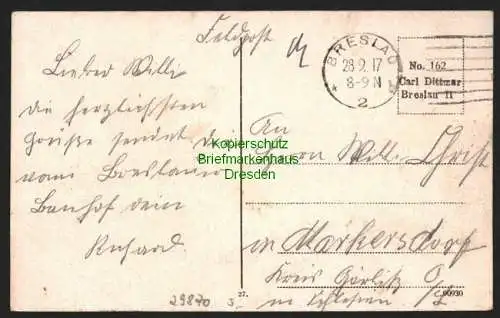 Feldpost
BRESLAU
28.9.17
8-9 N
* 2
No. 162
Carl Dittmar
Breslau II
Lieber Willi
die herzlichsten
Grüße sendet dir
vom Breslauer
Bahnhof dein
Richard.
Kopierschutz
Briefmarkenhaus
Dresden
An
Herrn Willi Christ
in Markersdorf
Kreis Görlitz O/L
in Schlesien
29870
27.
C. 00930